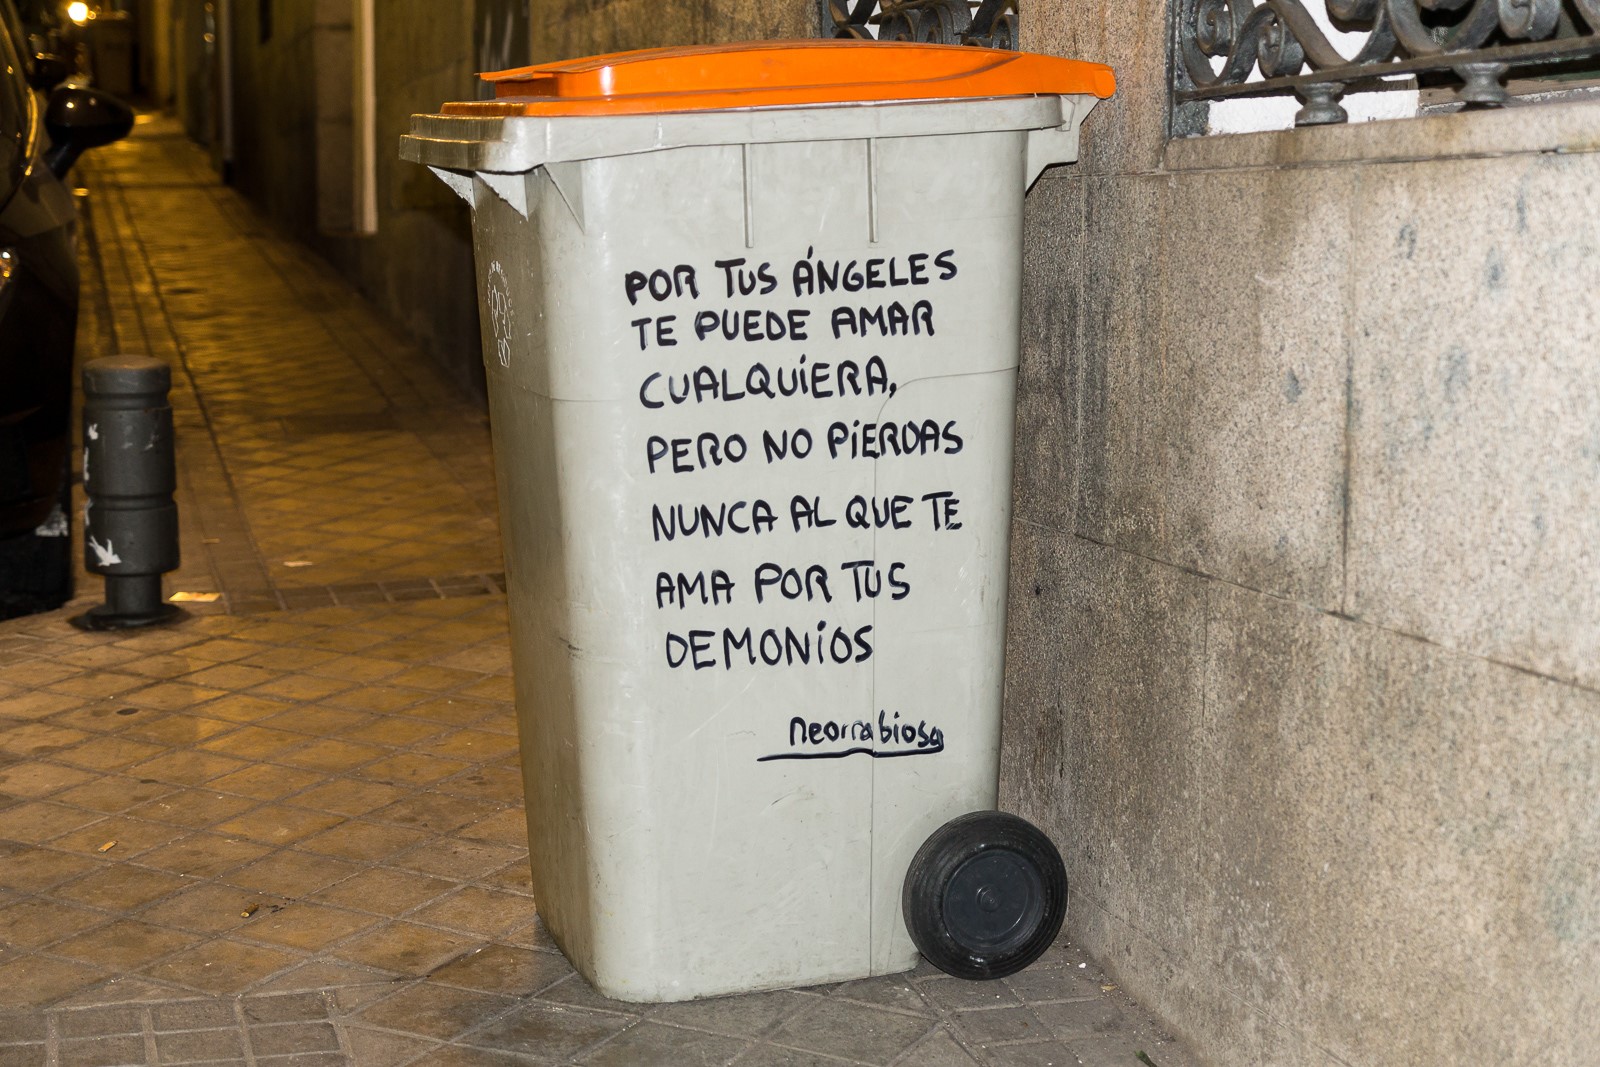 POR TUS ÁNGELES
TE PUEDE AMAR
CUALQUIERA,
PERO NO PIERDAS
NUNCA AL QUE TE
AMA POR TUS
DEMONIOS
neorrabiosa